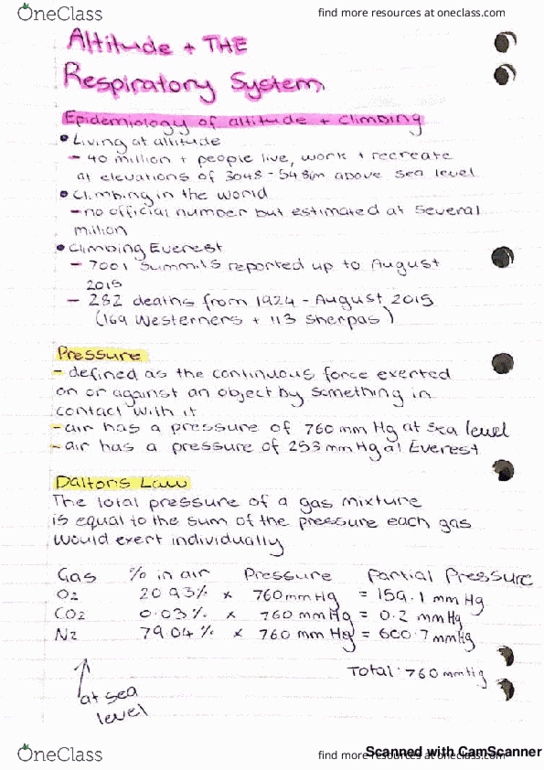 OneClass
find more resources at oneclass.com
Altitude + THE
Respiratory System
Epidemiology of altitude + climbing
• Living at altitude
- 40 million + people live, work + recreate
at elevations of 3048 - 5486m above sea level
• Climbing in the world
- no official number but estimated at several
million
• Climbing Everest
- 7001 summits reported up to August
2015
- 282 deaths from 1924 - August 2015
(169 Westerners + 113 sherpas)
Pressure
- defined as the continuous force exerted
on or against an object by something in
contact with it
- air has a pressure of 760 mm Hg at sea level
- air has a pressure of 253 mm Hg at Everest
Daltons Law
The total pressure of a gas mixture
is equal to the sum of the pressure each gas
would exert individually
Gas % in air Pressure Partial Pressure
O2 20.93% x 760mmHg = 159.1 mm Hg
CO2 0.03% x 760 mm Hg = 0.2 mm Hg
N2 79.04% x 760 mm Hg = 600.7 mmHg
Total: 760 mmHg
at sea
level
OneClass
find more resources at oneclass.com
Scanned with CamScanner